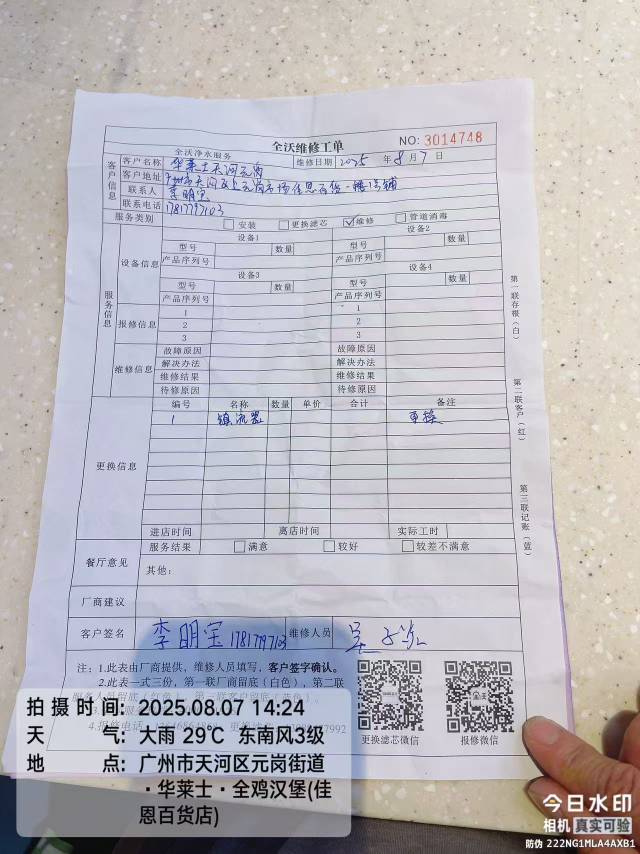 全沃维修工单
NO: 3014748
全沃净水服务
维修日期 2025 年 8 月 7 日
客户信息
客户名称 华莱士天河元岗
客户地址
联系人 李明宝
联系电话 17817797103
服务类别 安装 更换滤芯 维修 管道消毒
服务信息
设备信息
设备1 设备2
型号 数量 型号 数量
产品序列号 产品序列号
设备3 设备4
型号 数量 型号 数量
产品序列号 产品序列号
报修信息
1 1
2 2
3 3
维修信息
故障原因 故障原因
解决办法 解决办法
维修结果 维修结果
待修原因 待修原因
更换信息
编号 名称 数量 单价 合计 备注
1 镇流器 更换
进店时间 离店时间 实际工时
餐厅意见
服务结果 满意 较好 较差不满意
其他:
厂商建议
客户签名 李明宝 17817797103 维修人员
注: 1.此表由厂商提供，维修人员填写，客户签字确认。
2.此表一式三份，第一联厂商留底(白色)、第二联
更换滤芯微信 报修微信
第一联存根(白)
第二联客户(红)
第三联记账(蓝)
拍摄时间: 2025.08.07 14:24
天气: 大雨 29℃ 东南风3级
地点: 广州市天河区元岗街道
·华莱士·全鸡汉堡(佳
恩百货店)
今日水印
相机 真实可验
防伪 222NG1MLA4AXB1